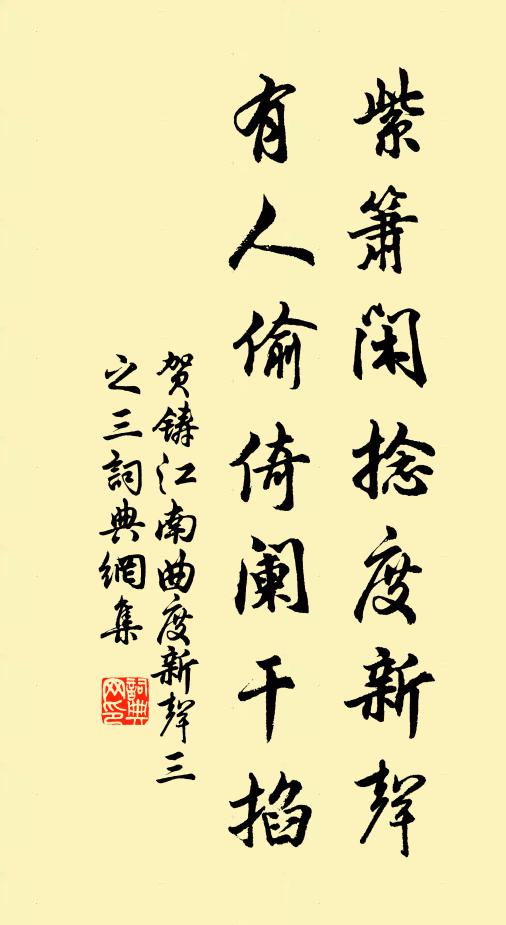 紫箫闲捻度新聲
有人偷倚阑干掐
贺鑄江南曲度新聲三
之三詞典網集
詞典网印